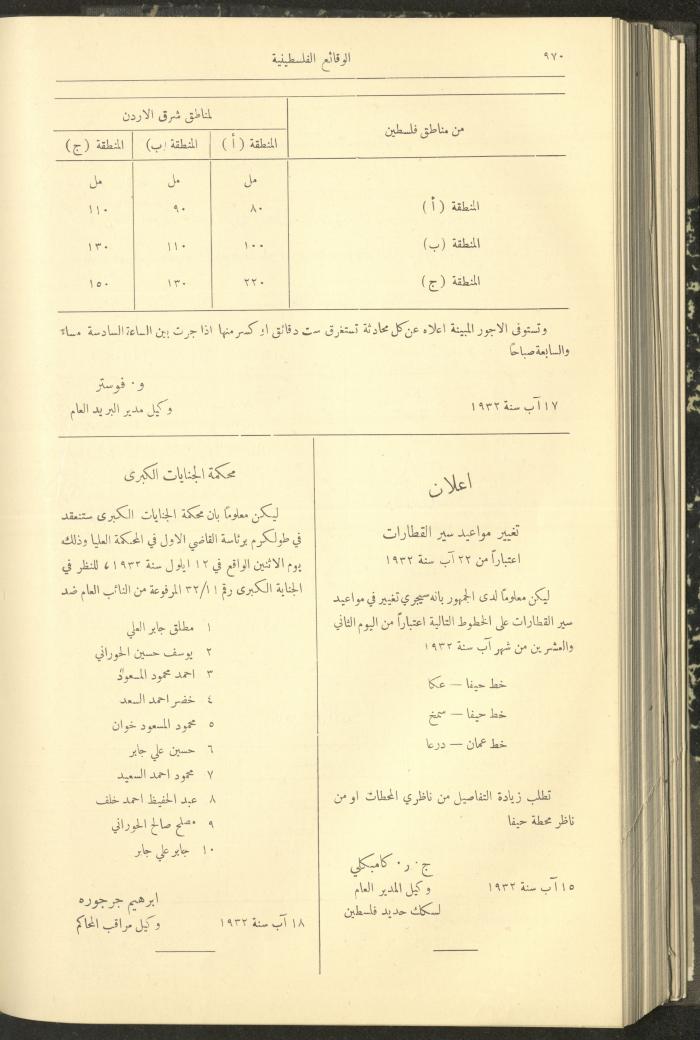 ٩٧٠
الوقائع الفلسطينية
من مناطق فلسطين
لمناطق شرق الاردن
المنطقة (أ) المنطقة (ب) المنطقة (ج)
مل مل مل
المنطقة (أ) ٨٠ ٩٠ ١١٠
المنطقة (ب) ١٠٠ ١١٠ ١٣٠
المنطقة (ج) ٢٢٠ ١٣٠ ١٥٠
وتستوفى الاجور المبينة اعلاه عن كل محادثة تستغرق ست دقائق او كسر منها اذا جرت بين الساعة السادسة مساءً
والسابعة صباحًا
و. فوستر
١٧ آب سنة ١٩٣٢ وكيل مدير البريد العام
اعلان
تغيير مواعيد سير القطارات
اعتباراً من ٢٢ آب سنة ١٩٣٢
ليكن معلومًا لدى الجمهور بانه سيجري تغيير في مواعيد
سير القطارات على الخطوط التالية اعتباراً من اليوم الثاني
والعشرين من شهر آب سنة ١٩٣٢
خط حيفا — عكا
خط حيفا — سمخ
خط عمان — درعا
تطلب زيادة التفاصيل من ناظري المحطات او من
ناظر محطة حيفا
ج. ر. كامبكلي
١٥ آب سنة ١٩٣٢ وكيل المدير العام
لسكك حديد فلسطين
محكمة الجنايات الكبرى
ليكن معلومًا بان محكمة الجنايات الكبرى ستنعقد
في طولكرم برئاسة القاضي الاول في المحكمة العليا وذلك
يوم الاثنين الواقع في ١٢ ايلول سنة ١٩٣٢، للنظر في
الجناية الكبرى رقم ٣٢/١١ المرفوعة من النائب العام ضد
١ مطلق جابر العلي
٢ يوسف حسين الحوراني
٣ احمد محمود المسعود
٤ خضر احمد السعد
٥ محمود المسعود خوان
٦ حسين علي جابر
٧ محمود احمد السعيد
٨ عبد الحفيظ احمد خلف
٩ مصلح صالح الحوراني
١٠ جابر علي جابر
ابرهيم جرجوره
١٨ آب سنة ١٩٣٢ وكيل مراقب المحاكم